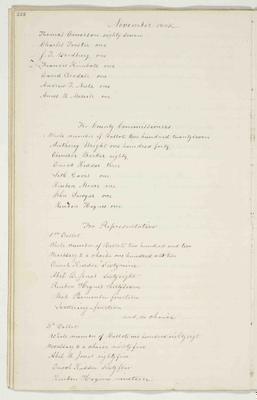 November
Thomas Emerson eighty seven
Charles Foster one
J. F. Woodbury one
Francis Kimball one
David Goodale one
Andrew F. one
Amos A. one
For County Commissioners
Whole number of Ballots two hundred twenty seven
Anthony Wright one hundred forty
eighty
David Kidder three
Seth Davis one
Reuben one
John Sawyer one
Reuben Haynes one
For Representative
1st Ballot
Whole number of Ballots two hundred and two
Necessary to a choice one hundred and two
David Kidder sixty nine
Abel B. Jones sixty eight
Reuben Haynes
Abel Parmenter fourteen
Scattering fourteen
and no choice
2d Ballot
Whole number of Ballots one hundred sixty eight
Necessary to a choice eighty five
Abel B. Jones eighty five
David Kidder sixty four
Reuben Haynes nineteen